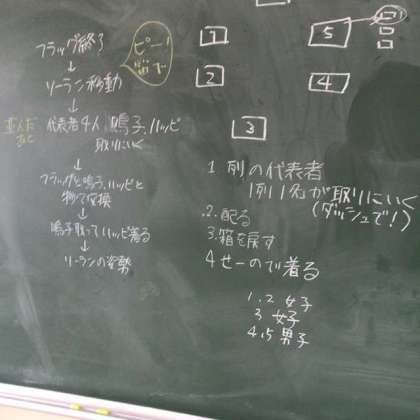 フラッグ終了
ピー！
笛で
↓
ソーラン移動
↓
並んだ
あと
代表者4人 鳴子、ハッピ
取りにいく
↓
フラッグと鳴子、ハッピと
物々交換
↓
鳴子取ってハッピ着る
↓
ソーランの姿勢
1
5
2
4
3
1 列の代表者
1列1名が取りにいく
(ダッシュで!)
2.配る
3.箱を戻す
4 せーので着る
1、2 女子
3 女子
4、5 男子